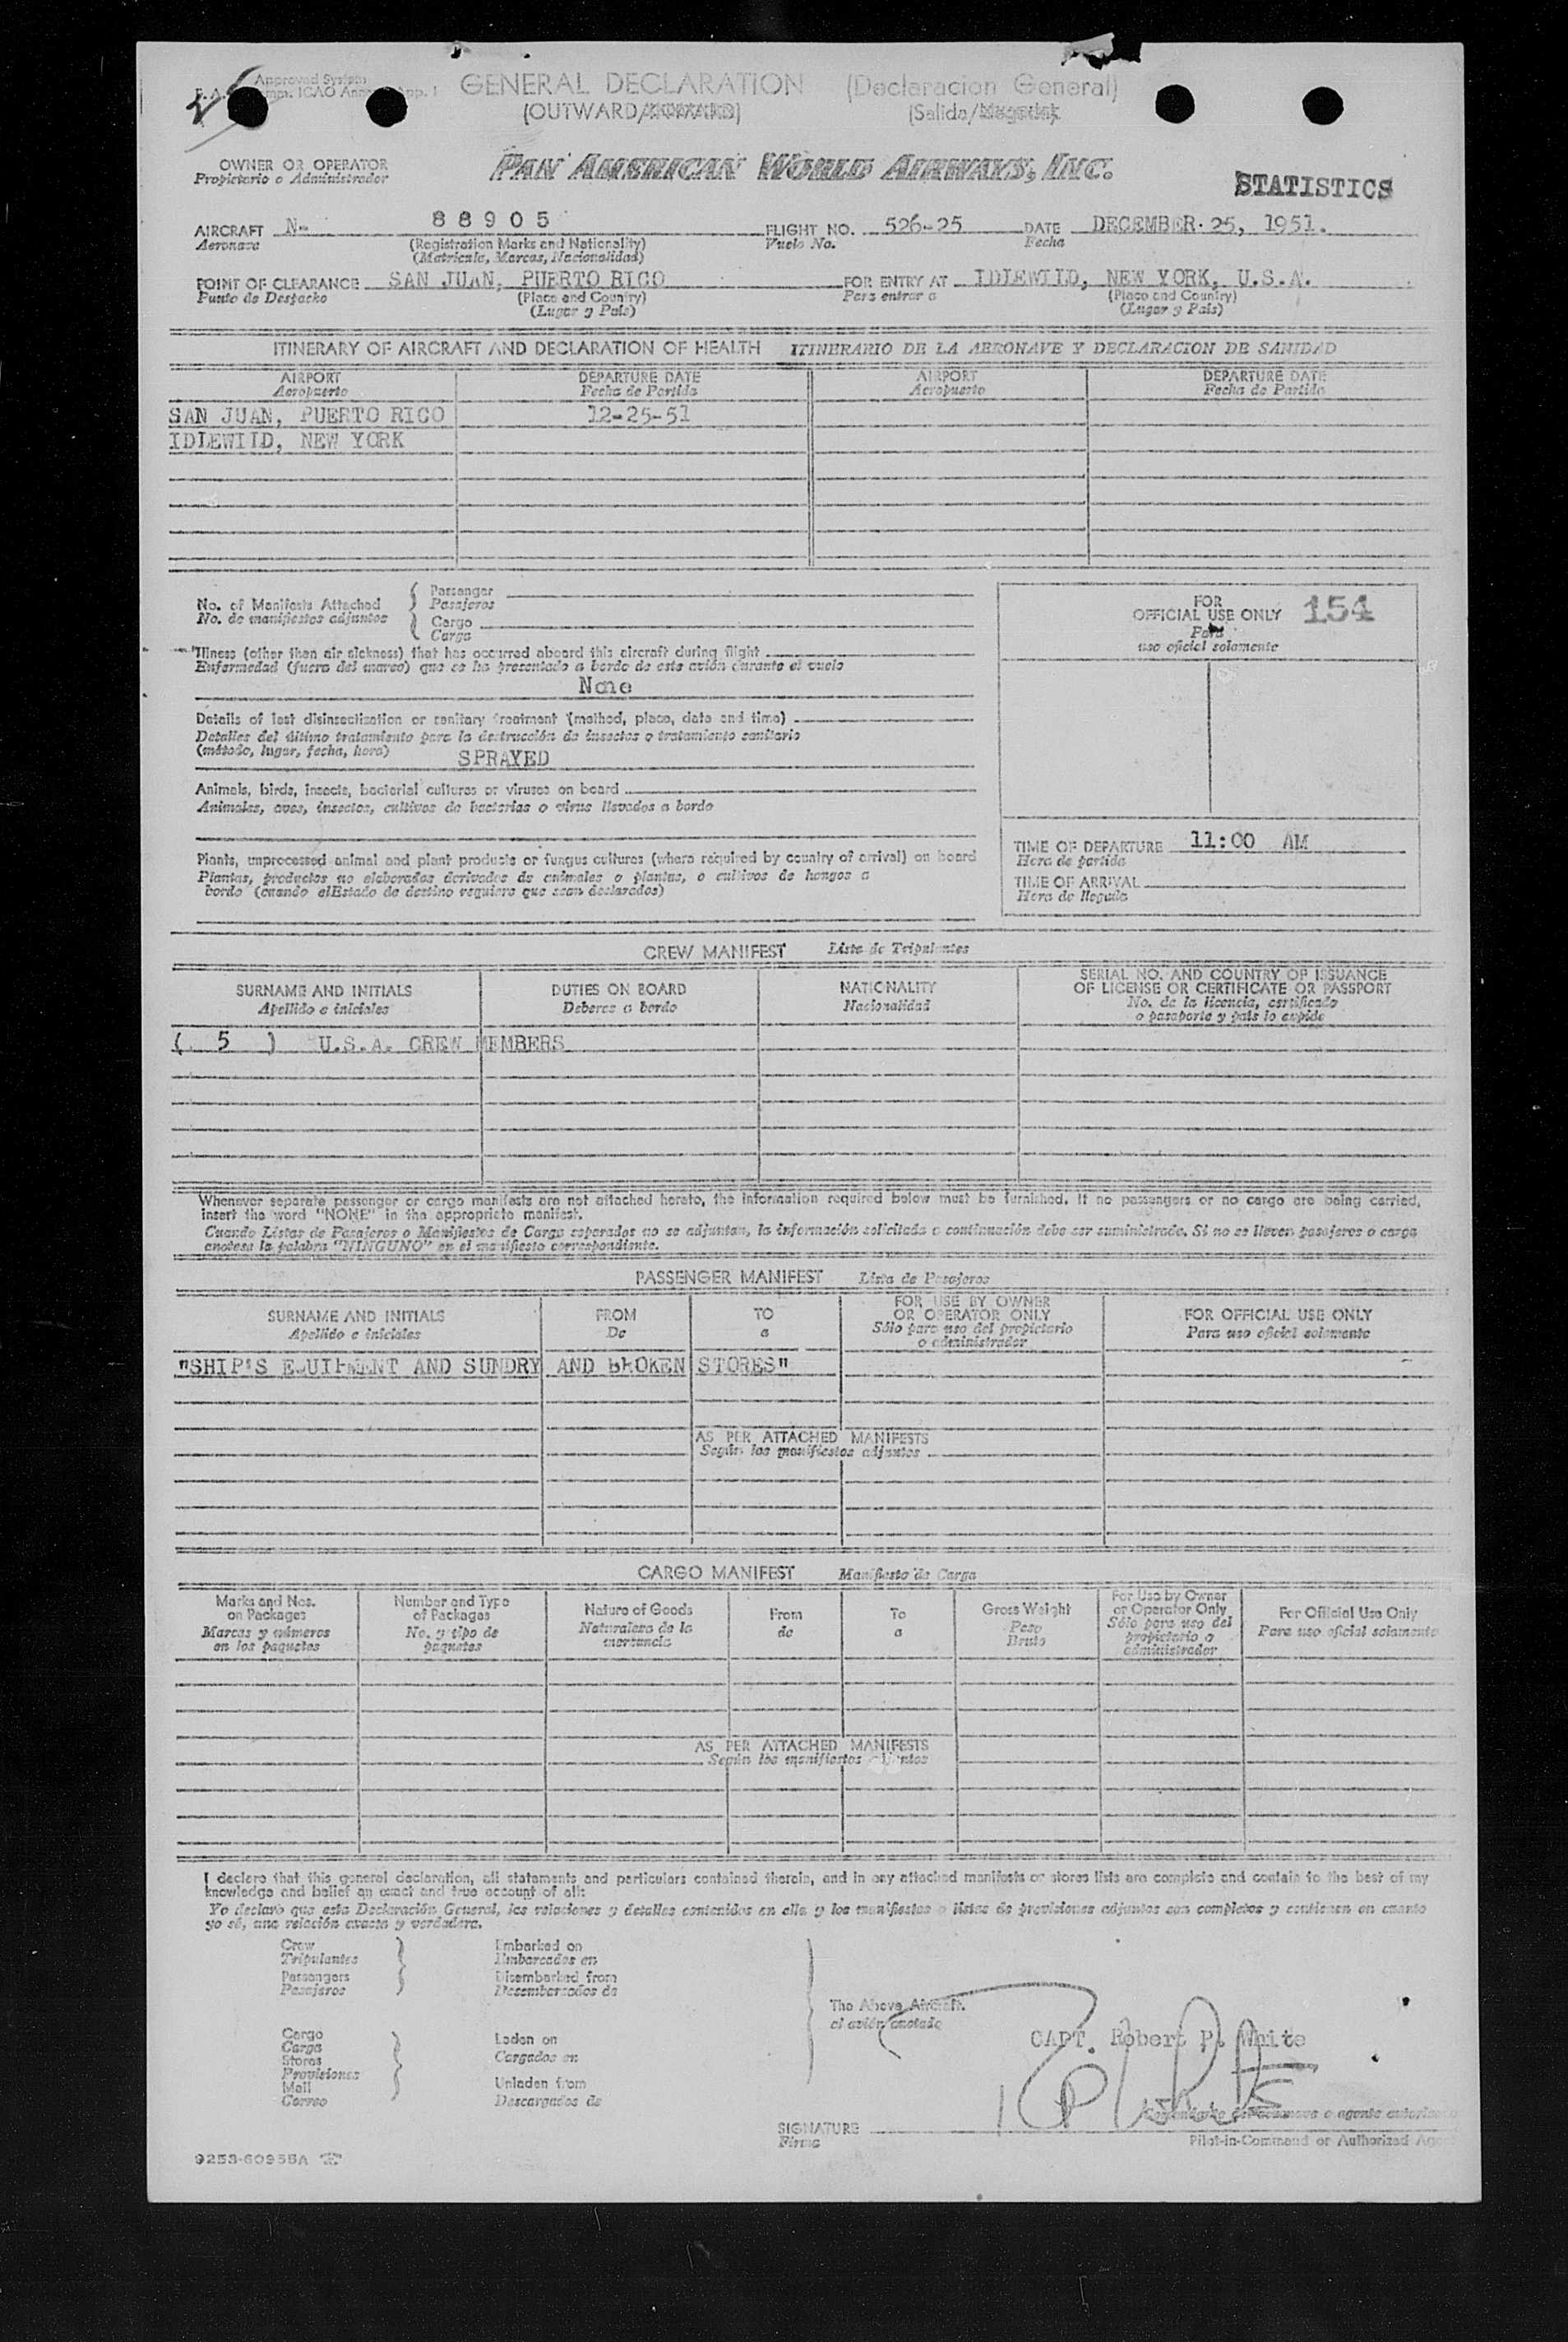 Approved System
GENERAL DECLARATION (Declaracion General)
(OUTWARD/INWARD) (Salida/
OWNER OR OPERATOR
Propietario o Administrador
PAN AMERICAN WORLD AIRWAYS, INC.
STATISTICS
AIRCRAFT N- 88905 FLIGHT NO. 526-25 DATE DECEMBER 25, 1951.
Aeronave (Registration Marks and Nationality) Vuelo No. Fecha
(Matricula, Marcas, Nacionalidad)
POINT OF CLEARANCE SAN JUAN, PUERTO RICO FOR ENTRY AT IDLEWILD, NEW YORK, U.S.A.
Punto de Despacho (Place and Country) Para entrar a (Place and Country)
(Lugar y Pais) (Lugar y Pais)
ITINERARY OF AIRCRAFT AND DECLARATION OF HEALTH ITINERARIO DE LA AERONAVE Y DECLARACION DE SANIDAD
AIRPORT DEPARTURE DATE AIRPORT DEPARTURE DATE
Aeropuerto Fecha de Partida Aeropuerto Fecha de Partida
SAN JUAN, PUERTO RICO 12-25-51
IDLEWILD, NEW YORK
No. of Manifests Attached
No. de manifiestos adjuntos
Passenger
Pasajeros
Cargo
Carga
Illness (other than air sickness) that has occurred aboard this aircraft during flight
Enfermedad (fuera del mareo) que se ha presentado a bordo de este avión durante el vuelo
None
Details of last disinsectization or sanitary treatment (method, place, date and time)
Detalles del último tratamiento para la destrucción de insectos o tratamiento sanitario
(método, lugar, fecha, hora) SPRAYED
Animals, birds, insects, bacterial cultures or viruses on board
Animales, aves, insectos, cultivos de bacterias o virus llevados a bordo
Plants, unprocessed animal and plant products or fungus cultures (where required by country of arrival) on board
Plantas, productos no elaborados derivados de animales o plantas, o cultivos de hongos a
bordo (cuando elEstado de destino requiera que sean declarados)
FOR
OFFICIAL USE ONLY 154
Para
uso oficial solamente
TIME OF DEPARTURE 11:00 AM
Hora de partida
TIME OF ARRIVAL
Hora de llegada
CREW MANIFEST Lista de Tripulantes
SURNAME AND INITIALS DUTIES ON BOARD NATIONALITY SERIAL NO. AND COUNTRY OF ISSUANCE
OF LICENSE OR CERTIFICATE OR PASSPORT
Apellido e iniciales Deberes a bordo Nacionalidad No. de la licencia, certificado
o pasaporte y país lo expide
( 5 ) U.S.A. CREW MEMBERS
Whenever separate passenger or cargo manifests are not attached hereto, the information required below must be furnished. If no passengers or no cargo are being carried,
insert the word "NONE" in the appropriate manifest.
Cuando Listas de Pasajeros o Manifiestos de Cargo separados no se adjuntan, la información solicitada a continuación debe ser suministrada. Si no se llevan pasajeros o carga
anotese la palabra "NINGUNO" en el manifiesto correspondiente.
PASSENGER MANIFEST Lista de Pasajeros
SURNAME AND INITIALS FROM TO FOR USE BY OWNER
OR OPERATOR ONLY FOR OFFICIAL USE ONLY
Apellido e iniciales De a Sólo para uso del propietario
o administrador Para uso oficial solamente
"SHIP'S EQUIPMENT AND SUNDRY AND BROKEN STORES"
AS PER ATTACHED MANIFESTS
Según los manifiestos adjuntos
CARGO MANIFEST Manifiesto de Carga
Marks and Nos.
on Packages
Marcas y números
en los paquetes
Number and Type
of Packages
No. y tipo de
paquetes
Nature of Goods
Naturaleza de la
mercancia
From
de
To
a
Gross Weight
Peso
Bruto
For Use by Owner
or Operator Only
Sólo para uso del
propietario o
administrador
For Official Use Only
Para uso oficial solamente
AS PER ATTACHED MANIFESTS
Según los manifiestos adjuntos
I declare that this general declaration, all statements and particulars contained therein, and in any attached manifests or stores lists are complete and contain to the best of my
knowledge and belief an exact and true account of all:
Yo declaro que esta Declaración General, las relaciones y detalles contenidos en ella y los manifiestos o listas de provisiones adjuntos son completos y contienen en cuanto
yo sé, una relación exacta y verdadera.
Crew
Tripulantes
Passengers
Pasajeros
Embarked on
Embarcados en
Disembarked from
Desembarcados de
Cargo
Carga
Stores
Provisiones
Mail
Correo
Laden on
Cargados en
Unladen from
Descargados de
The Above Aircraft.
el avión anotado
CAPT. Robert P. White
SIGNATURE
Firma
Pilot-in-Command or Authorized
9253-60955A